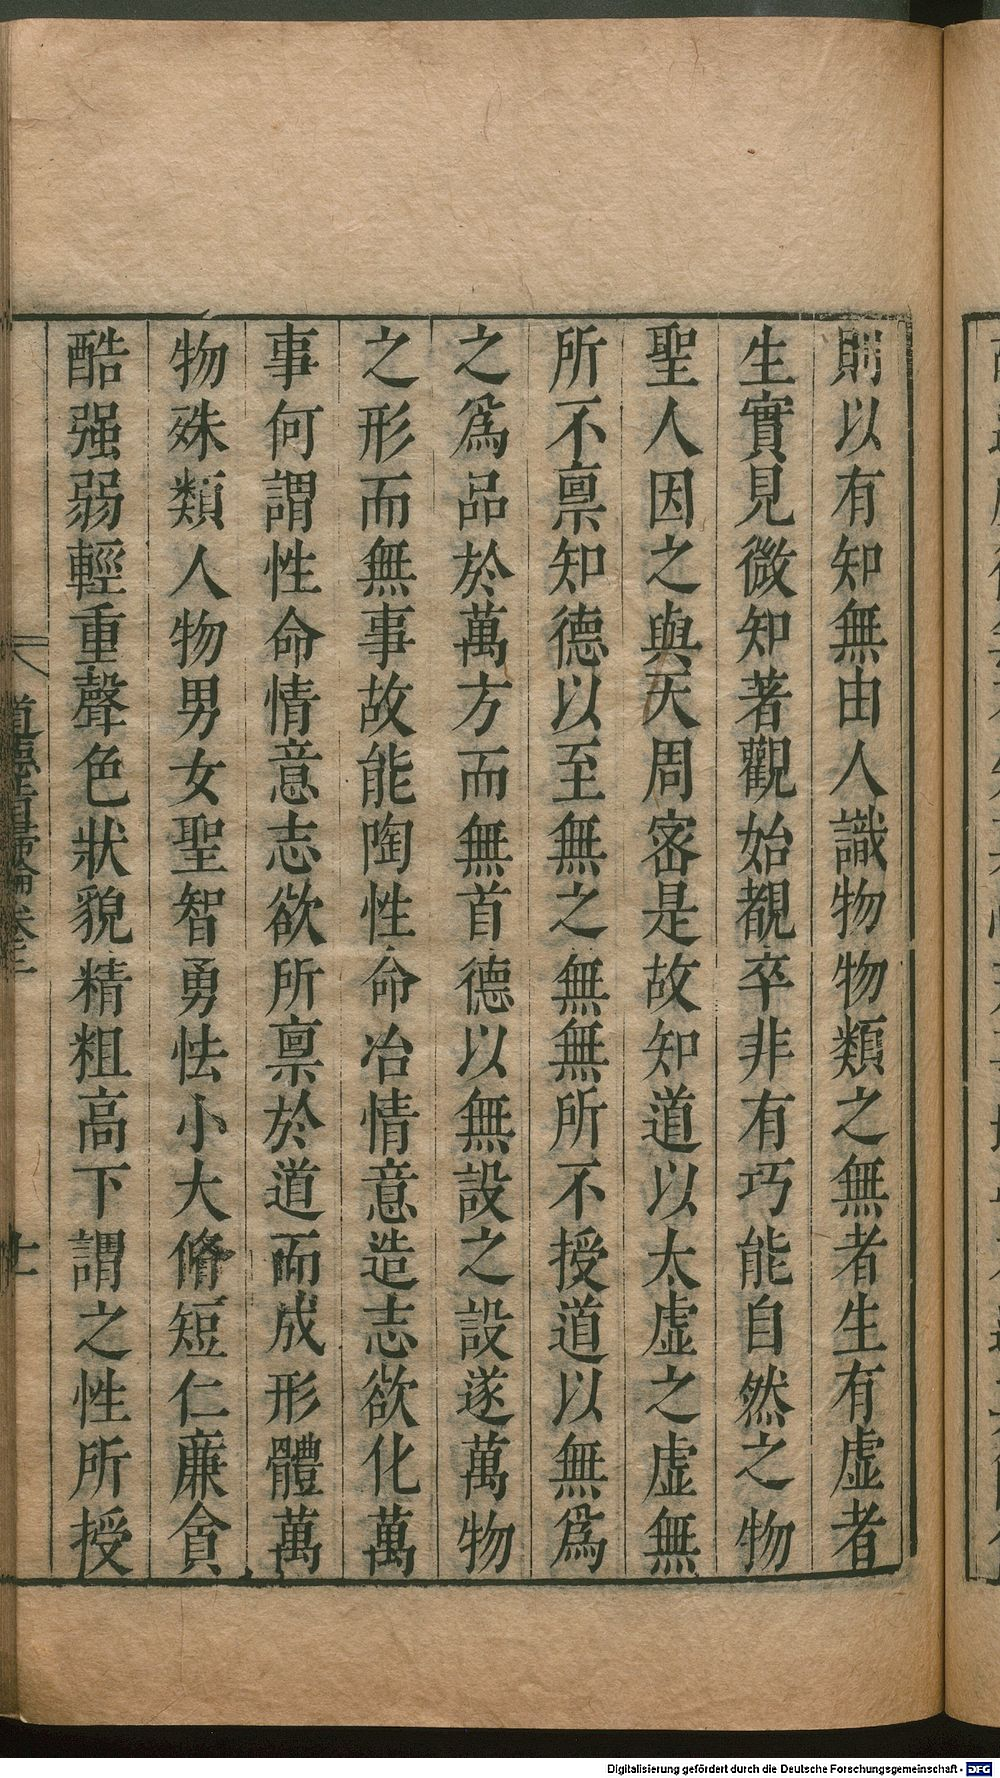 則以有知無由人識物物類之無者生有虛者
生實見微知著觀始覩卒非有巧能自然之物
聖人因之與天周密是故知道以太虛之虛無
所不禀知德以至無之無無所不授道以無爲
之爲品於萬方而無首德以無設之設遂萬物
之形而無事故能陶性命冶情意造志欲化萬
事何謂性命情意志欲所禀於道而成形體萬
物殊類人物男女聖智勇怯小大脩短仁廉貪
酷强弱輕重聲色狀貌精粗高下謂之性所授
道德指歸論卷三
十一
Digitalisierung gefördert durch die Deutsche Forschungsgemeinschaft - DFG